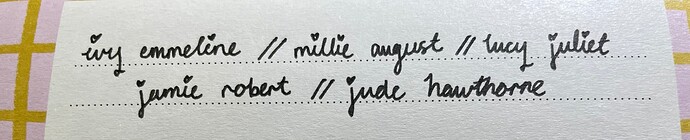 ivy emmeline // millie august // lucy juliet
jamie robert // jude hawthorne